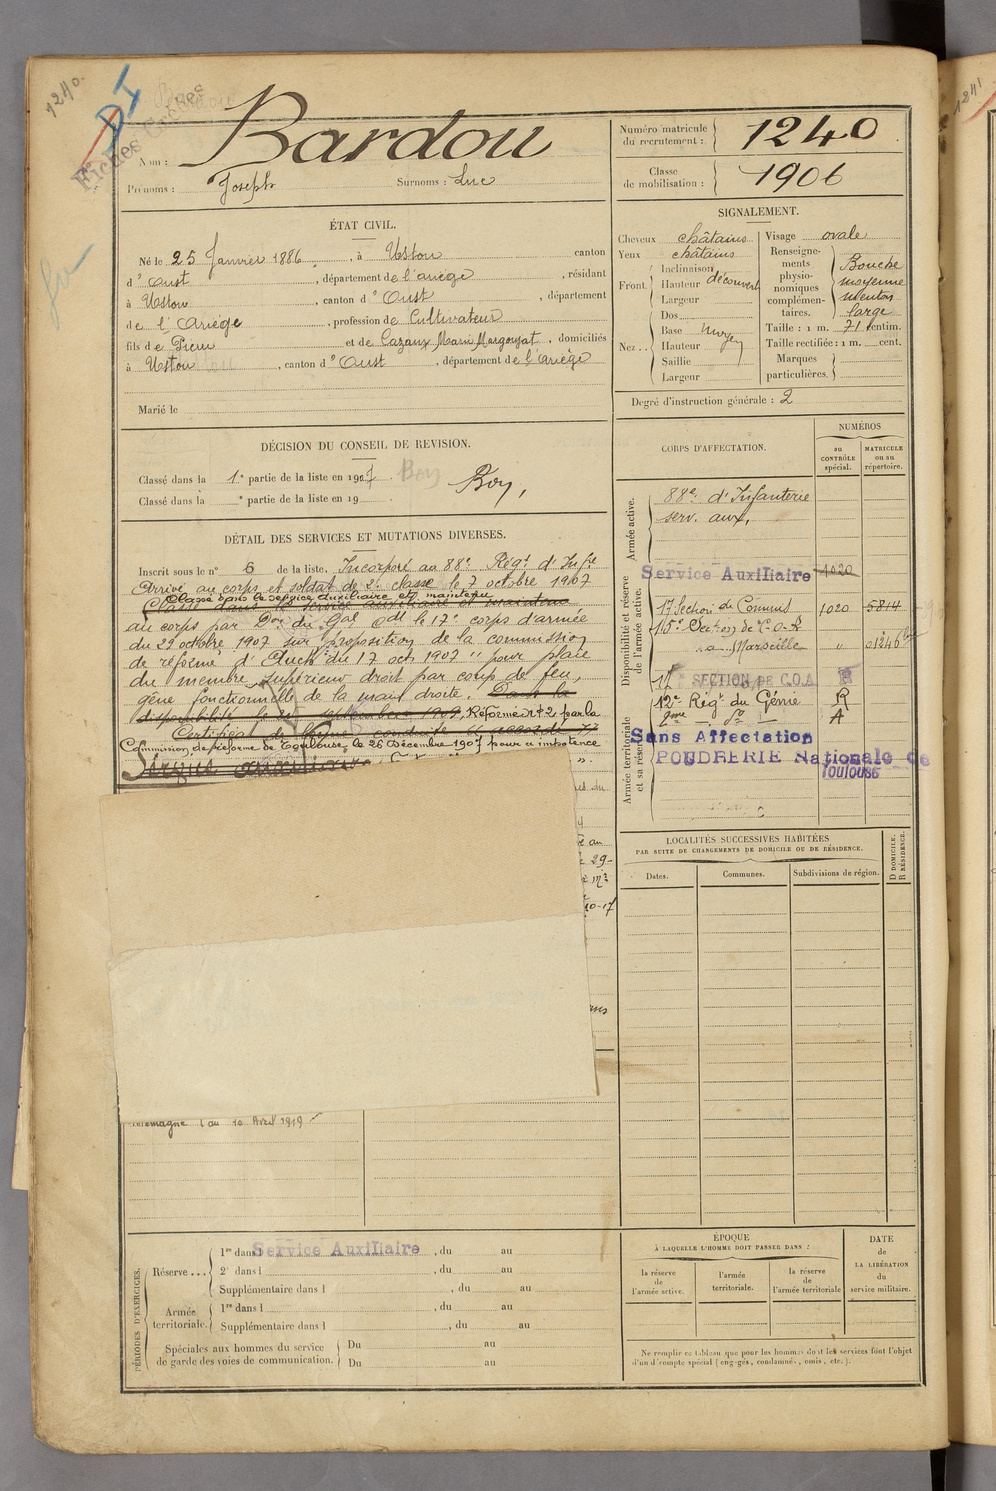 1240.
DI
Fiches
Nom : Bardou
Prénoms : Joseph Surnoms : Luc
Numéro matricule du recrutement : 1240
Classe de mobilisation : 1906
ÉTAT CIVIL.
Né le 25 Janvier 1886, à Ustou canton
d'Oust, département de l'ariège, résidant
à Ustou, canton d'Oust, département
de l'Ariège, profession de Cultivateur
fils de Pierre et de Cazaux Marie Margouyat, domiciliés
à Ustou, canton d'Oust, département de l'Ariège
Marié le
SIGNALEMENT.
Cheveux châtains
Yeux châtains
Front. Inclinaison
Hauteur découvert
Largeur
Nez.. Dos
Base moyen
Hauteur
Saillie
Largeur
Visage ovale
Renseignements physionomiques complémentaires. Bouche moyenne menton large
Taille : 1 m. 71 centim.
Taille rectifiée : 1 m. cent.
Marques particulières.
Degré d'instruction générale : 2
DÉCISION DU CONSEIL DE REVISION.
Classé dans la 1e partie de la liste en 1907 Bon,
Classé dans la e partie de la liste en 19
DÉTAIL DES SERVICES ET MUTATIONS DIVERSES.
Inscrit sous le n° 6 de la liste. Incorporé au 88e Régt d'Infie
Arrivé au corps et soldat de 2e classe le 7 octobre 1907
Classé dans le service auxiliaire et maintenu
Classé dans le service auxiliaire et maintenu
au corps par Don du Gal Cdt le 17e corps d'armée
du 22 octobre 1907 sur proposition de la commission
de réforme d'Auch du 17 oct 1907 " pour place
du membre supérieur droit par coup de feu,
gêne fonctionnelle de la main droite. Dans la
disponibilité le 25 septembre 1909. Réformé n° 2 par la
Certificat de bonne conduite accordé
Commission de réforme de Toulouse, le 26 décembre 1907 pour " impotence
Service auxiliaire
Allemagne le au 10 Avril 1919
CORPS D'AFFECTATION.
NUMÉROS
au CONTRÔLE spécial.
MATRICULE ou au répertoire.
Armée active.
88e d'Infanterie
serv. aux,
Disponibilité et réserve de l'armée active.
Service Auxiliaire 1020
17 Section de Commis 1020 5814
15e Section de C.O.A
à Marseille " 01246
17 SECTION DE C.O.A R
12e Régt du Génie R
2ème do A
Armée territoriale et sa réserve
Sans Affectation
POUDRERIE Nationale de
Toulouse
LOCALITÉS SUCCESSIVES HABITÉES
PAR SUITE DE CHANGEMENTS DE DOMICILE OU DE RÉSIDENCE.
Dates. Communes. Subdivisions de région. D DOMICILE. R RÉSIDENCE.
PÉRIODES D'EXERCICES.
Réserve... 1re dans Service Auxiliaire, du au
2e dans l, du au
Supplémentaire dans l, du au
Armée territoriale. 1re dans l, du au
Supplémentaire dans l, du au
Spéciales aux hommes du service de garde des voies de communication. Du au
Du au
ÉPOQUE
À LAQUELLE L'HOMME DOIT PASSER DANS :
la réserve de l'armée active.
l'armée territoriale.
la réserve de l'armée territoriale
DATE de LA LIBÉRATION du service militaire.
Ne remplir ce tableau que pour les hommes dont les services font l'objet
d'un décompte spécial (engagés, condamnés, omis, etc.).
1241